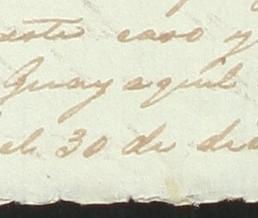 este caso y
Guayaquil
el 30 de di